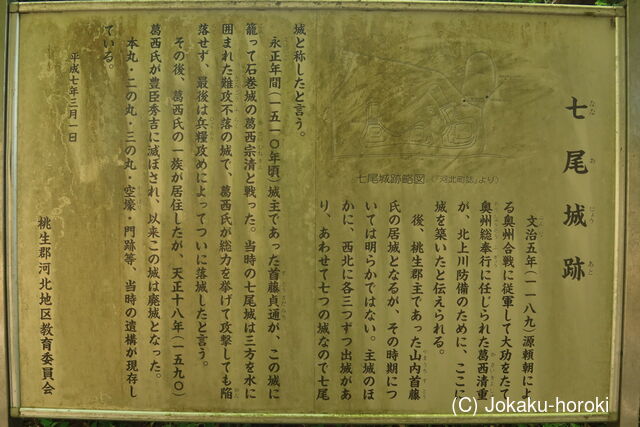 七尾城跡
なな お じょう あと
文治五年(一一八九)源頼朝によ
る奥州合戦に従軍して大功をたて
奥州総奉行に任じられた葛西清重
が、北上川防備のために、ここに
城を築いたと伝えられる。
後、桃生郡主であった山内首藤
氏の居城となるが、その時期につ
いては明らかではない。主城のほ
かに、西北に各三つずつ出城があ
り、あわせて七つの城なので七尾
七尾城跡略図(「河北町誌」より)
城と称したと言う。
永正年間(一五一〇年頃)城主であった首藤貞通が、この城に
籠って石巻城の葛西宗清と戦った。当時の七尾城は三方を水に
囲まれた難攻不落の城で、葛西氏が総力を挙げて攻撃しても陥
落せず、最後は兵糧攻めによってついに落城したと言う。
その後、葛西氏の一族が居住したが、天正十八年(一五九〇)
葛西氏が豊臣秀吉に滅ぼされ、以来この城は廃城となった。
本丸・二の丸・三の丸・空壕・門跡等、当時の遺構が現存し
ている。
平成七年三月一日
桃生郡河北地区教育委員会
(C) Jokaku-horoki